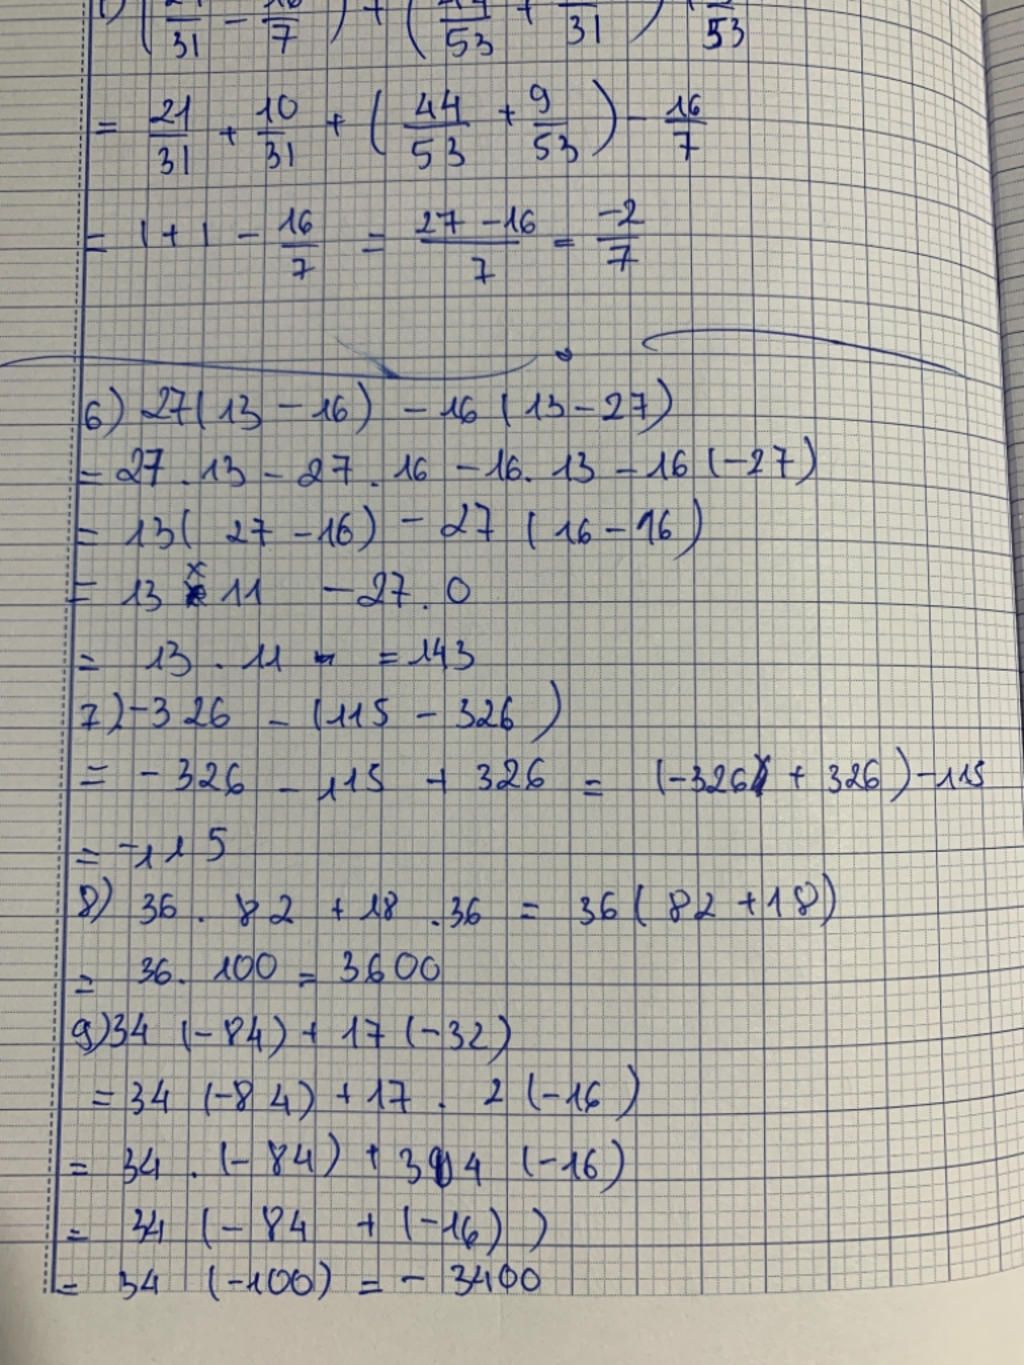 21/31 + 10/31 + (44/53 + 9/53) - 16/7
= 1 + 1 - 16/7 = 27 - 16/7 = -2/7
6) 27(13 - 16) - 16(13 - 27)
= 27 . 13 - 27 . 16 - 16 . 13 - 16 (-27)
= 13( 27 - 16) - 27 (16 - 16)
= 13 x 11 - 27 . 0
= 13 . 11 = 143
7) -326 - (115 - 326)
= - 326 - 115 + 326 = (-326 + 326) - 115
= -115
8) 36 . 82 + 18 . 36 = 36 ( 82 + 18)
= 36 . 100 = 3600
9) 34 (-84) + 17 (-32)
= 34 (-84) + 17 . 2 (-16)
= 34 . (-84) + 34 (-16)
= 34 (- 84 + (-16) )
= 34 (-100) = - 3400